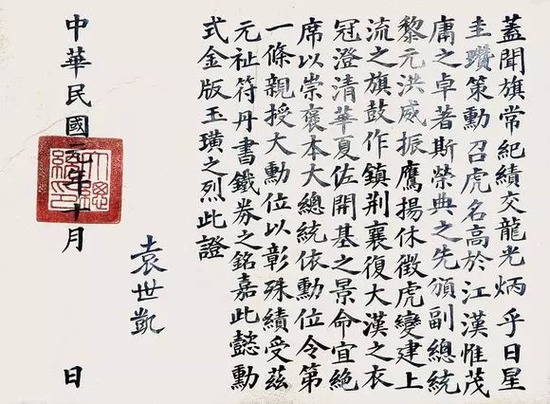 蓋聞旗常紀績交龍光炳乎日星
圭瓚策勳召虎名高於江漢惟茂
庸之卓著斯榮典之先頒副總統
黎元洪威振鷹揚休徵虎變建上
流之旗鼓作鎮荆襄復大漢之衣
冠澄清華夏佐開基之景命宜絶
席以崇褒本大總統依勳位令第
一條親授大勳位以彰殊績受兹
元祉符丹書鐵券之銘嘉此懿勳
式金版玉璜之烈此證
袁世凱
中華民國元年十月 日